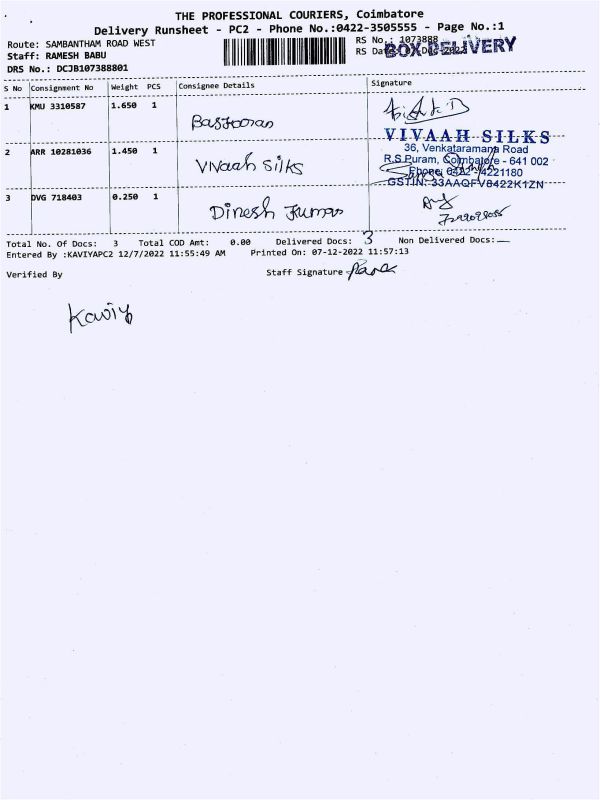 THE PROFESSIONAL COURIERS, Coimbatore
Delivery Runsheet - PC2 - Phone No.:0422-3505555 - Page No.:1
Route: SAMBANTHAM ROAD WEST
RS No.: 1073888
Staff: RAMESH BABU
RS Date: Dec-2022
BOX DELIVERY
DRS No.: DCJB107388801
S No Consignment No Weight PCS Consignee Details Signature
1 KMU 3310587 1.650 1
VIVAAH SILKS
36, Venkataramana Road
R.S.Puram, Coimbatore - 641 002
Phone: 0422-4221180
GSTIN: 33AAQFV8422K1ZN
2 ARR 10281036 1.450 1 Vivaah Silks
3 DVG 718403 0.250 1 Dinesh Kumar
Total No. Of Docs: 3 Total COD Amt: 0.00 Delivered Docs: 3 Non Delivered Docs: —
Entered By :KAVIYAPC2 12/7/2022 11:55:49 AM Printed On: 07-12-2022 11:57:13
Verified By Staff Signature
Kaviy